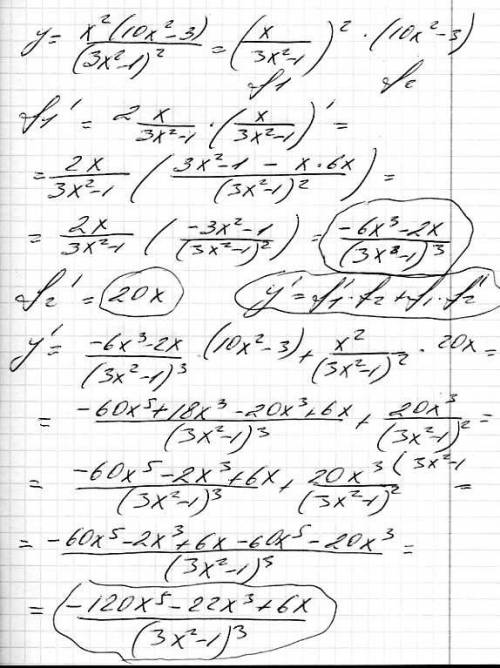 y = x²(10x²-3)/(3x²-1)² = (x/(3x²-1))² · (10x²-3)
f1 f2
f1' = 2 x/(3x²-1) · (x/(3x²-1))' =
= 2x/(3x²-1) ((3x²-1 - x·6x)/(3x²-1)²) =
= 2x/(3x²-1) ((-3x²-1)/(3x²-1)²) = (-6x³-2x)/(3x²-1)³
f2' = 20x y' = f1'·f2 + f1·f2'
y' = (-6x³-2x)/(3x²-1)³ · (10x²-3) + x²/(3x²-1)² · 20x =
= (-60x⁵+18x³-20x³+6x)/(3x²-1)³ + 20x³/(3x²-1)² =
= (-60x⁵-2x³+6x)/(3x²-1)³ + 20x³(3x²-1/(3x²-1)² =
= (-60x⁵-2x³+6x-60x⁵-20x³)/(3x²-1)³ =
= (-120x⁵-22x³+6x)/(3x²-1)³